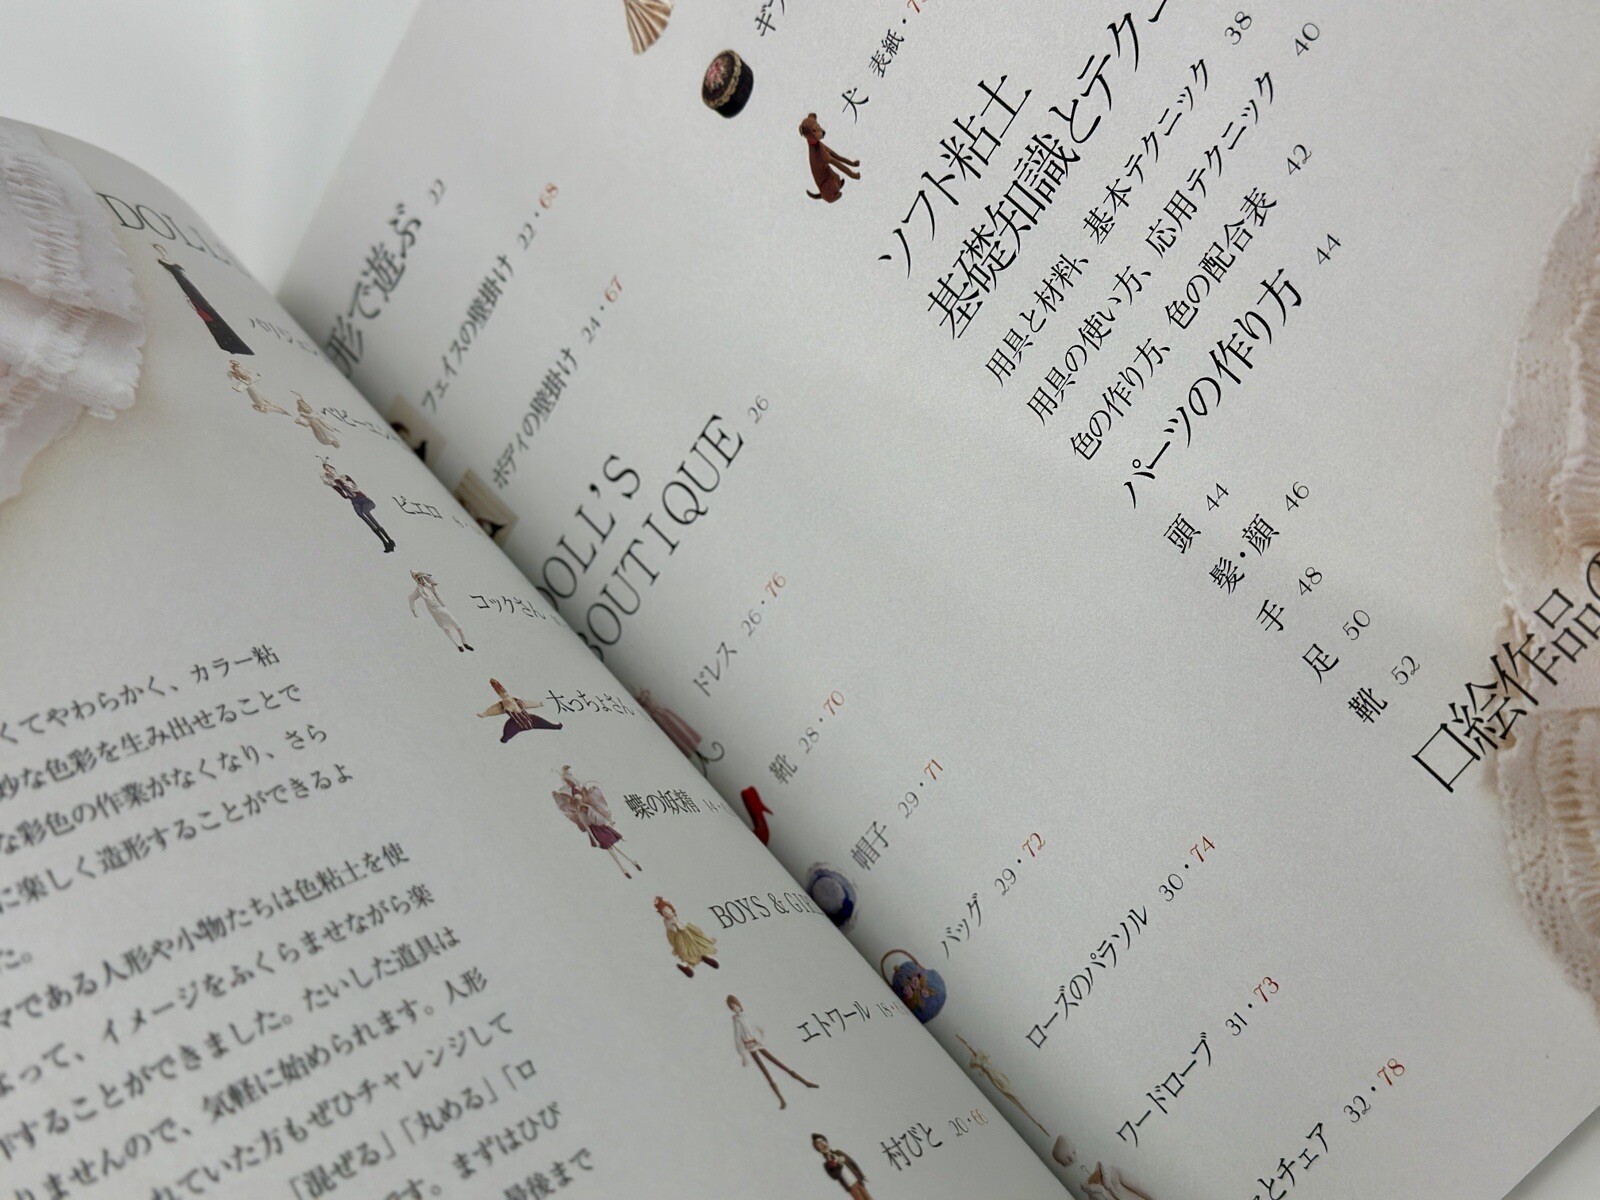 くてやわらかく、カラー粘
妙な色彩を生み出せることで
な彩色の作業がなくなり、さら
に楽しく造形することができるよ
た。
マである人形や小物たちは色粘土を使
よって、イメージをふくらませながら楽
作することができました。たいした道具は
りませんので、気軽に始められます。人形
れていた方もぜひチャレンジして
「混ぜる」「丸める」「ロ
です。まずはひび
最後まで
DOLL
ピエロ
コックさん
太っちょさん
蝶の妖精
BOYS & GI
エトワール
村びと 20・66
形で遊ぶ 22
フェイスの壁掛け 22・68
ボディの壁掛け 24・67
DOLL'S
BOUTIQUE 26
ドレス 26・76
靴 28・70
帽子 29・71
バッグ 29・72
ローズのパラソル 30・74
ワードローブ 31・73
とチェア 32・78
犬 表紙・
ソフト粘土
基礎知識とテク
用具と材料、基本テクニック 38
用具の使い方、応用テクニック 40
色の作り方、色の配合表 42
パーツの作り方 44
頭 44
髪・顔 46
手 48
足 50
靴 52
口絵作品の